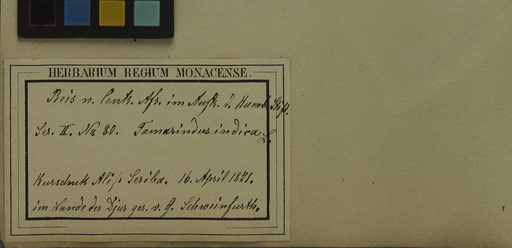 HERBARIUM REGIUM MONACENSE.
Reis n. Centr. Afr. im Auftr. d. Humb. Stift.
Ser. II. No 80. Tamarindus indica L.
Kurschuk Ali's Seriba. 16. April 1871.
im Lande der Djur ges. v. G. Schweinfurth.